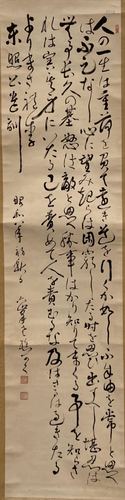 人の一生は重荷を負て遠き道を行くが如し不自由を常と思へ
ば不足なし心に望み起らば困窮したる時を思ひ出すべし堪忍は
無事長久の基怒は敵と思へ勝事ばかり知て負る事を知らざ
れば害其身に至るおのれを責て人を責むるな及ばざるは過ぎたる
よりまされり
東照公遺訓
昭和